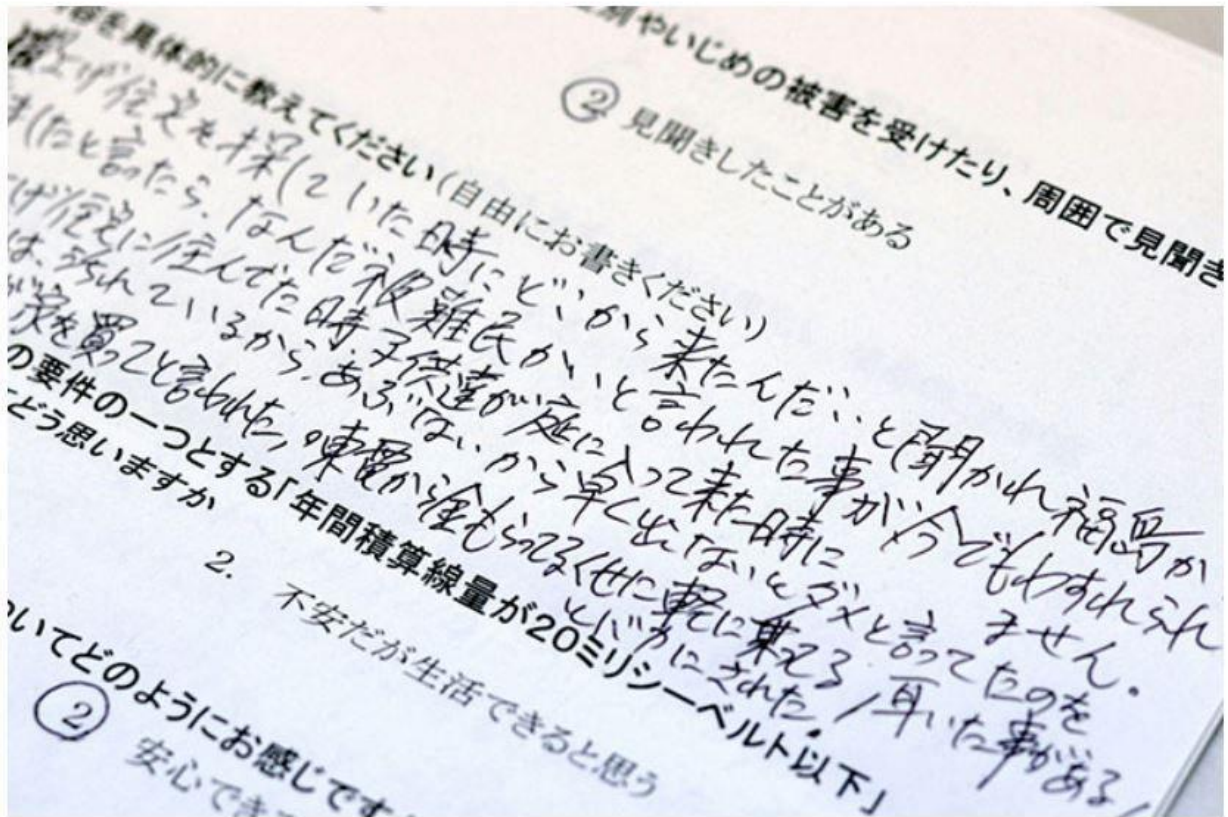 別やいじめの被害を受けたり、周囲で見聞き
② 見聞きしたことがある
容を具体的に教えてください(自由にお書きください)
上げ住宅を探していた時にどこから来たんだ、と聞かれ福島か
ましたと言ったら、なんだ避難民か、と言われた事が今でもわすれられ
ません。
げ住宅に住んでた時子供達が庭に入って来た時に
は、汚れているから、あぶないから早く出ないとダメと言ってたのを
耳いた事がある/
家を買ってと言われた,東電から金もらってるくせに軽に乗ってる/
とバカにされた.
の要件の一つとする「年間積算線量が20ミリシーベルト以下」
どう思いますか
2. 不安だが生活できると思う
いてどのようにお感じですか
② 安心でき